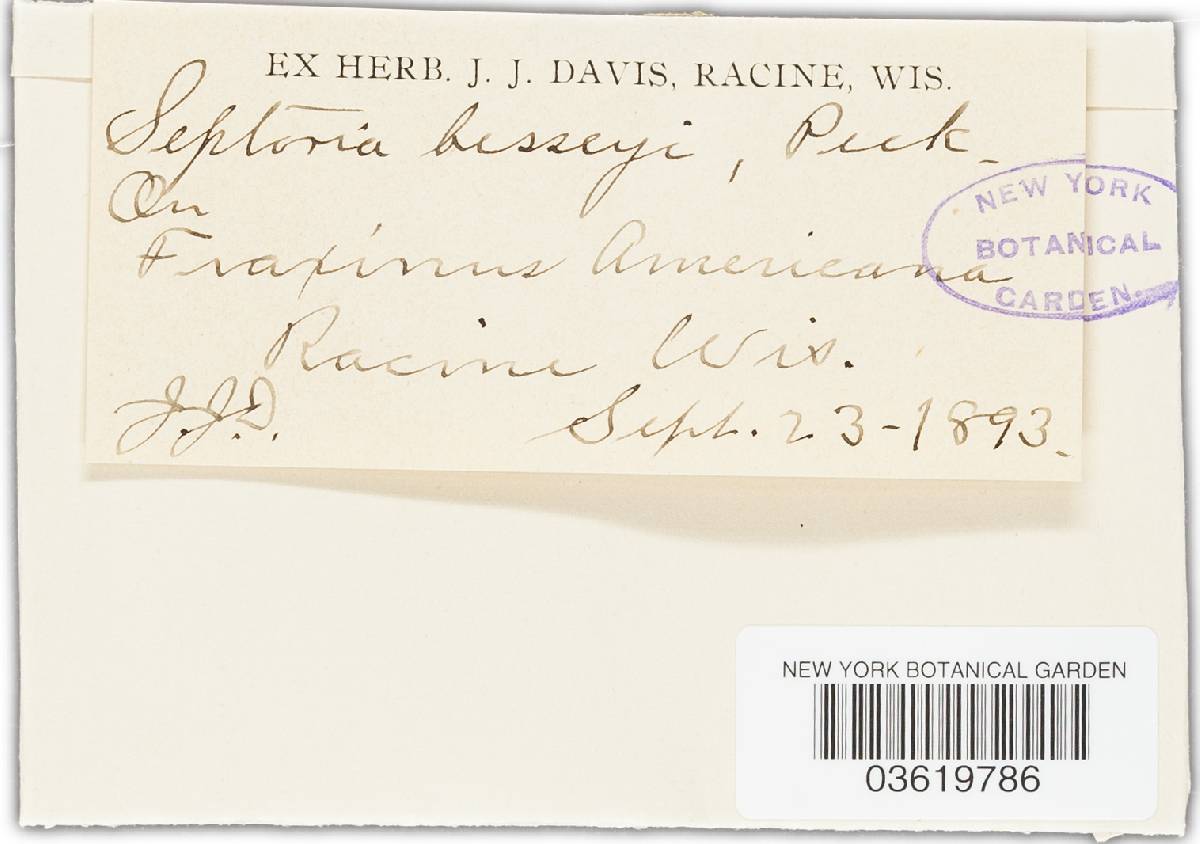 EX HERB. J. J. DAVIS, RACINE, WIS.
Septoria besseyi, Peck.
On
Fraxinus Americana
Racine Wis.
J.J.D. Sept. 23-1893.
NEW YORK
BOTANICAL
GARDEN.
NEW YORK BOTANICAL GARDEN
03619786